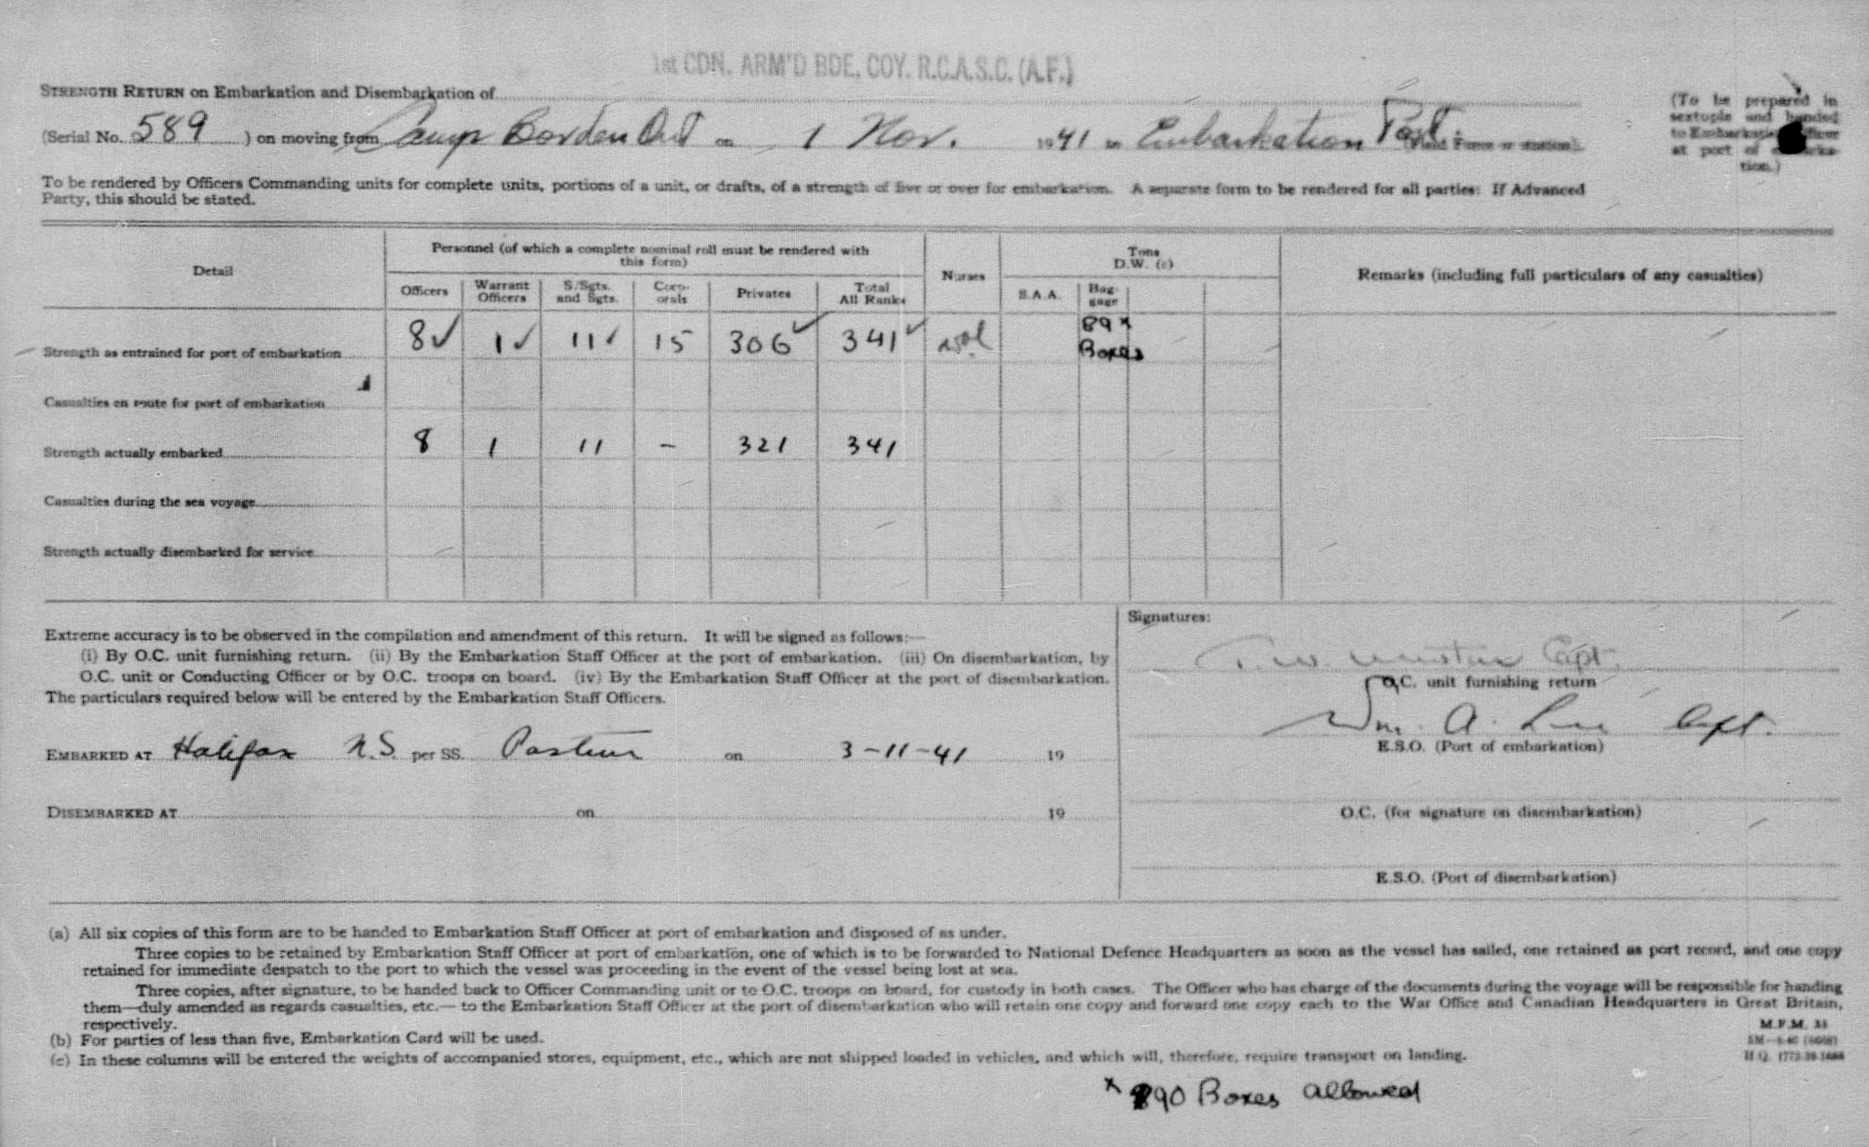 1st CDN. ARM'D BDE. COY. R.C.A.S.C. (A.F.)
STRENGTH RETURN on Embarkation and Disembarkation of
(Serial No. 589 ) on moving from Camp Borden Ont on 1 Nov. 1941 to Embarkation Port. (Field Force or station).
(To be prepared in
sextuple and handed
to Embarkation Officer
at port of embarka-
tion.)
To be rendered by Officers Commanding units for complete units, portions of a unit, or drafts, of a strength of five or over for embarkation. A separate form to be rendered for all parties: If Advanced
Party, this should be stated.
Detail
Personnel (of which a complete nominal roll must be rendered with
this form)
Officers
Warrant
Officers
S/Sgts.
and Sgts.
Corp-
orals
Privates
Total
All Ranks
Nurses
Tons
D.W. (c)
S.A.A.
Bag-
gage
Remarks (including full particulars of any casualties)
Strength as entrained for port of embarkation 8 1 11 15 306 341 89 x
Boxes
Casualties en route for port of embarkation
Strength actually embarked 8 1 11 – 321 341
Casualties during the sea voyage
Strength actually disembarked for service
Extreme accuracy is to be observed in the compilation and amendment of this return. It will be signed as follows:—
(i) By O.C. unit furnishing return. (ii) By the Embarkation Staff Officer at the port of embarkation. (iii) On disembarkation, by
O.C. unit or Conducting Officer or by O.C. troops on board. (iv) By the Embarkation Staff Officer at the port of disembarkation.
The particulars required below will be entered by the Embarkation Staff Officers.
EMBARKED AT Halifax N.S. per SS. Pasteur on 3-11-41 19
DISEMBARKED AT on 19
Signatures:
T.W. Capt.
O.C. unit furnishing return
Wm. A. Capt.
E.S.O. (Port of embarkation)
O.C. (for signature on disembarkation)
E.S.O. (Port of disembarkation)
(a) All six copies of this form are to be handed to Embarkation Staff Officer at port of embarkation and disposed of as under.
Three copies to be retained by Embarkation Staff Officer at port of embarkation, one of which is to be forwarded to National Defence Headquarters as soon as the vessel has sailed, one retained as port record, and one copy
retained for immediate despatch to the port to which the vessel was proceeding in the event of the vessel being lost at sea.
Three copies, after signature, to be handed back to Officer Commanding unit or to O.C. troops on board, for custody in both cases. The Officer who has charge of the documents during the voyage will be responsible for handing
them—duly amended as regards casualties, etc.—to the Embarkation Staff Officer at the port of disembarkation who will retain one copy and forward one copy each to the War Office and Canadian Headquarters in Great Britain,
respectively.
(b) For parties of less than five, Embarkation Card will be used.
(c) In these columns will be entered the weights of accompanied stores, equipment, etc., which are not shipped loaded in vehicles, and which will, therefore, require transport on landing.
M.F.M. 33
H.Q. 1772-39-1666
x 90 Boxes allowed